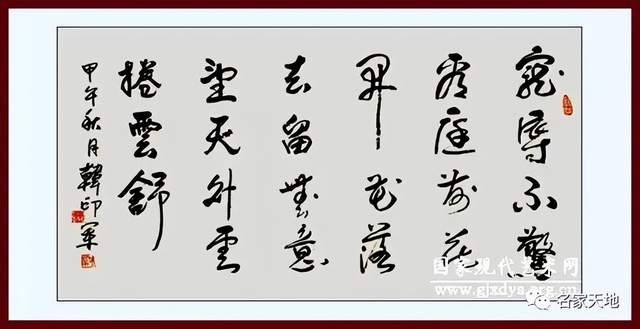 寵辱不驚
看庭前花
開花落
去留無意
望天外雲
捲雲舒
甲午秋月韓印軍
国家现代艺术网
www.gjxdys.org.cn
名家天地